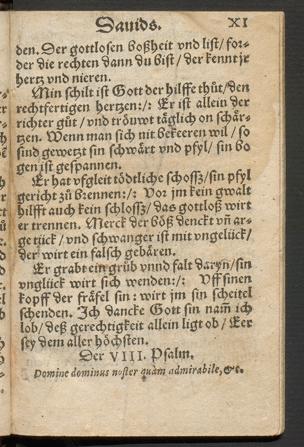 Dauids. XI
den. Der gottlosen boßheit vnd list/ for-
der die rechten dann du bist/ der kennt jr
hertz vnd nieren.
Min schilt ist Gott der hilffe thüt/ den
rechtfertigen hertzen:/: Er ist allein der
richter güt/ vnd tröuwt täglich on schär-
tzen. Wenn man sich nit bekeeren wil/ so
sind gewetzt sin schwärt vnd pfyl/ sin bo
gen ist gespannen.
Er hat vfgleit tödtliche schosß/ sin pfyl
gericht zü brennen:/: Vor jm kein gwalt
hilfft auch kein schlosß/ das gottloß wirt
er trennen. Merck der böß denckt vn̄ ar-
ge tück/ vnd schwanger ist mit vngelück/
der wirt ein falsch gebären.
Er grabt ein grüb vnnd falt daryn/ sin
vnglück wirt sich wenden:/: Vff sinen
kopff der fräfel sin: wirt jm sin scheitel
schenden. Ich dancke Gott sin nam̄ ich
lob/ deß gerechtigkeit allein ligt ob/ Eer
sey dem aller höchsten.
Der VIII. Psalm.
Domine dominus noster quàm admirabile, &c.